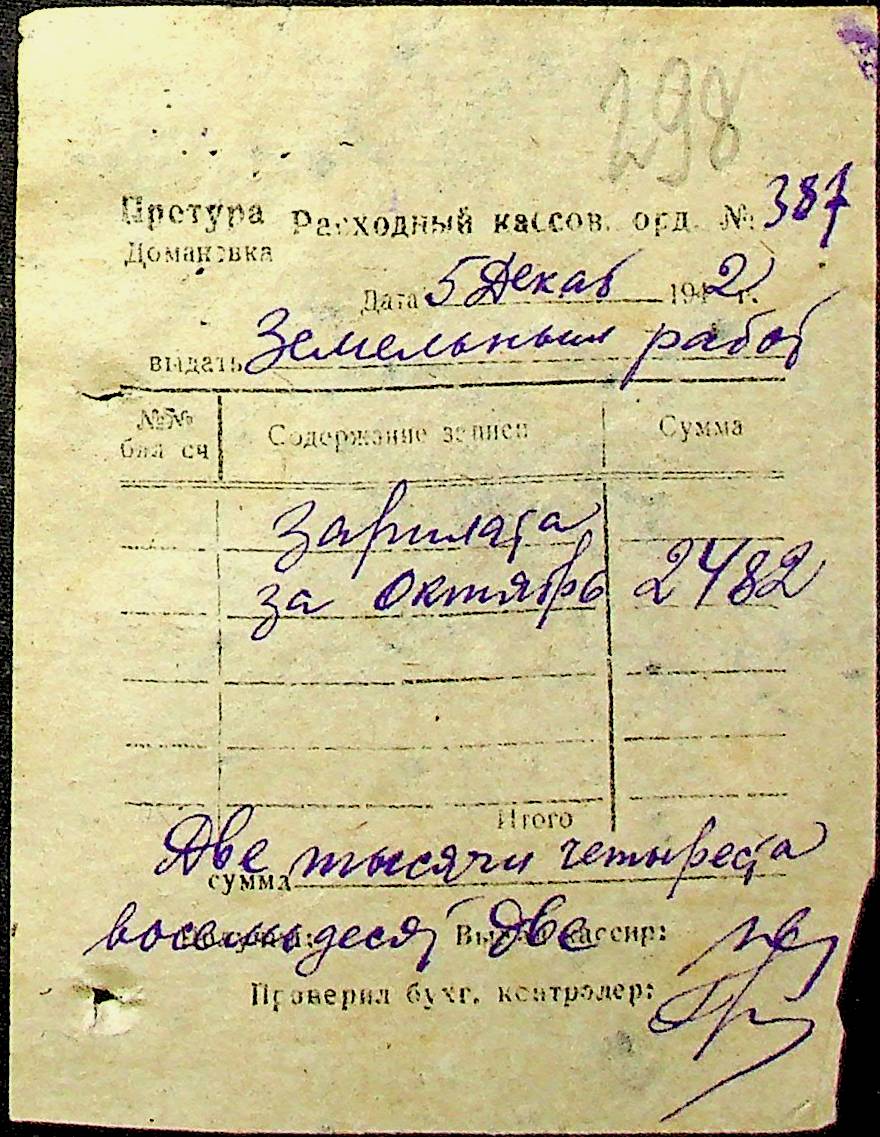 298
Претура Расходный кассов. орд. № 387
Домановка
Дата 5 Декаб 1942 г.
выдать Земельным работ
№№ бал сч Содержание записи Сумма
Зарплата
за Октябрь 2482
Итого
сумма Две тысячи четыреста
восемьдесят две
Получил: Выдал кассир:
Проверил бухг. контролер: